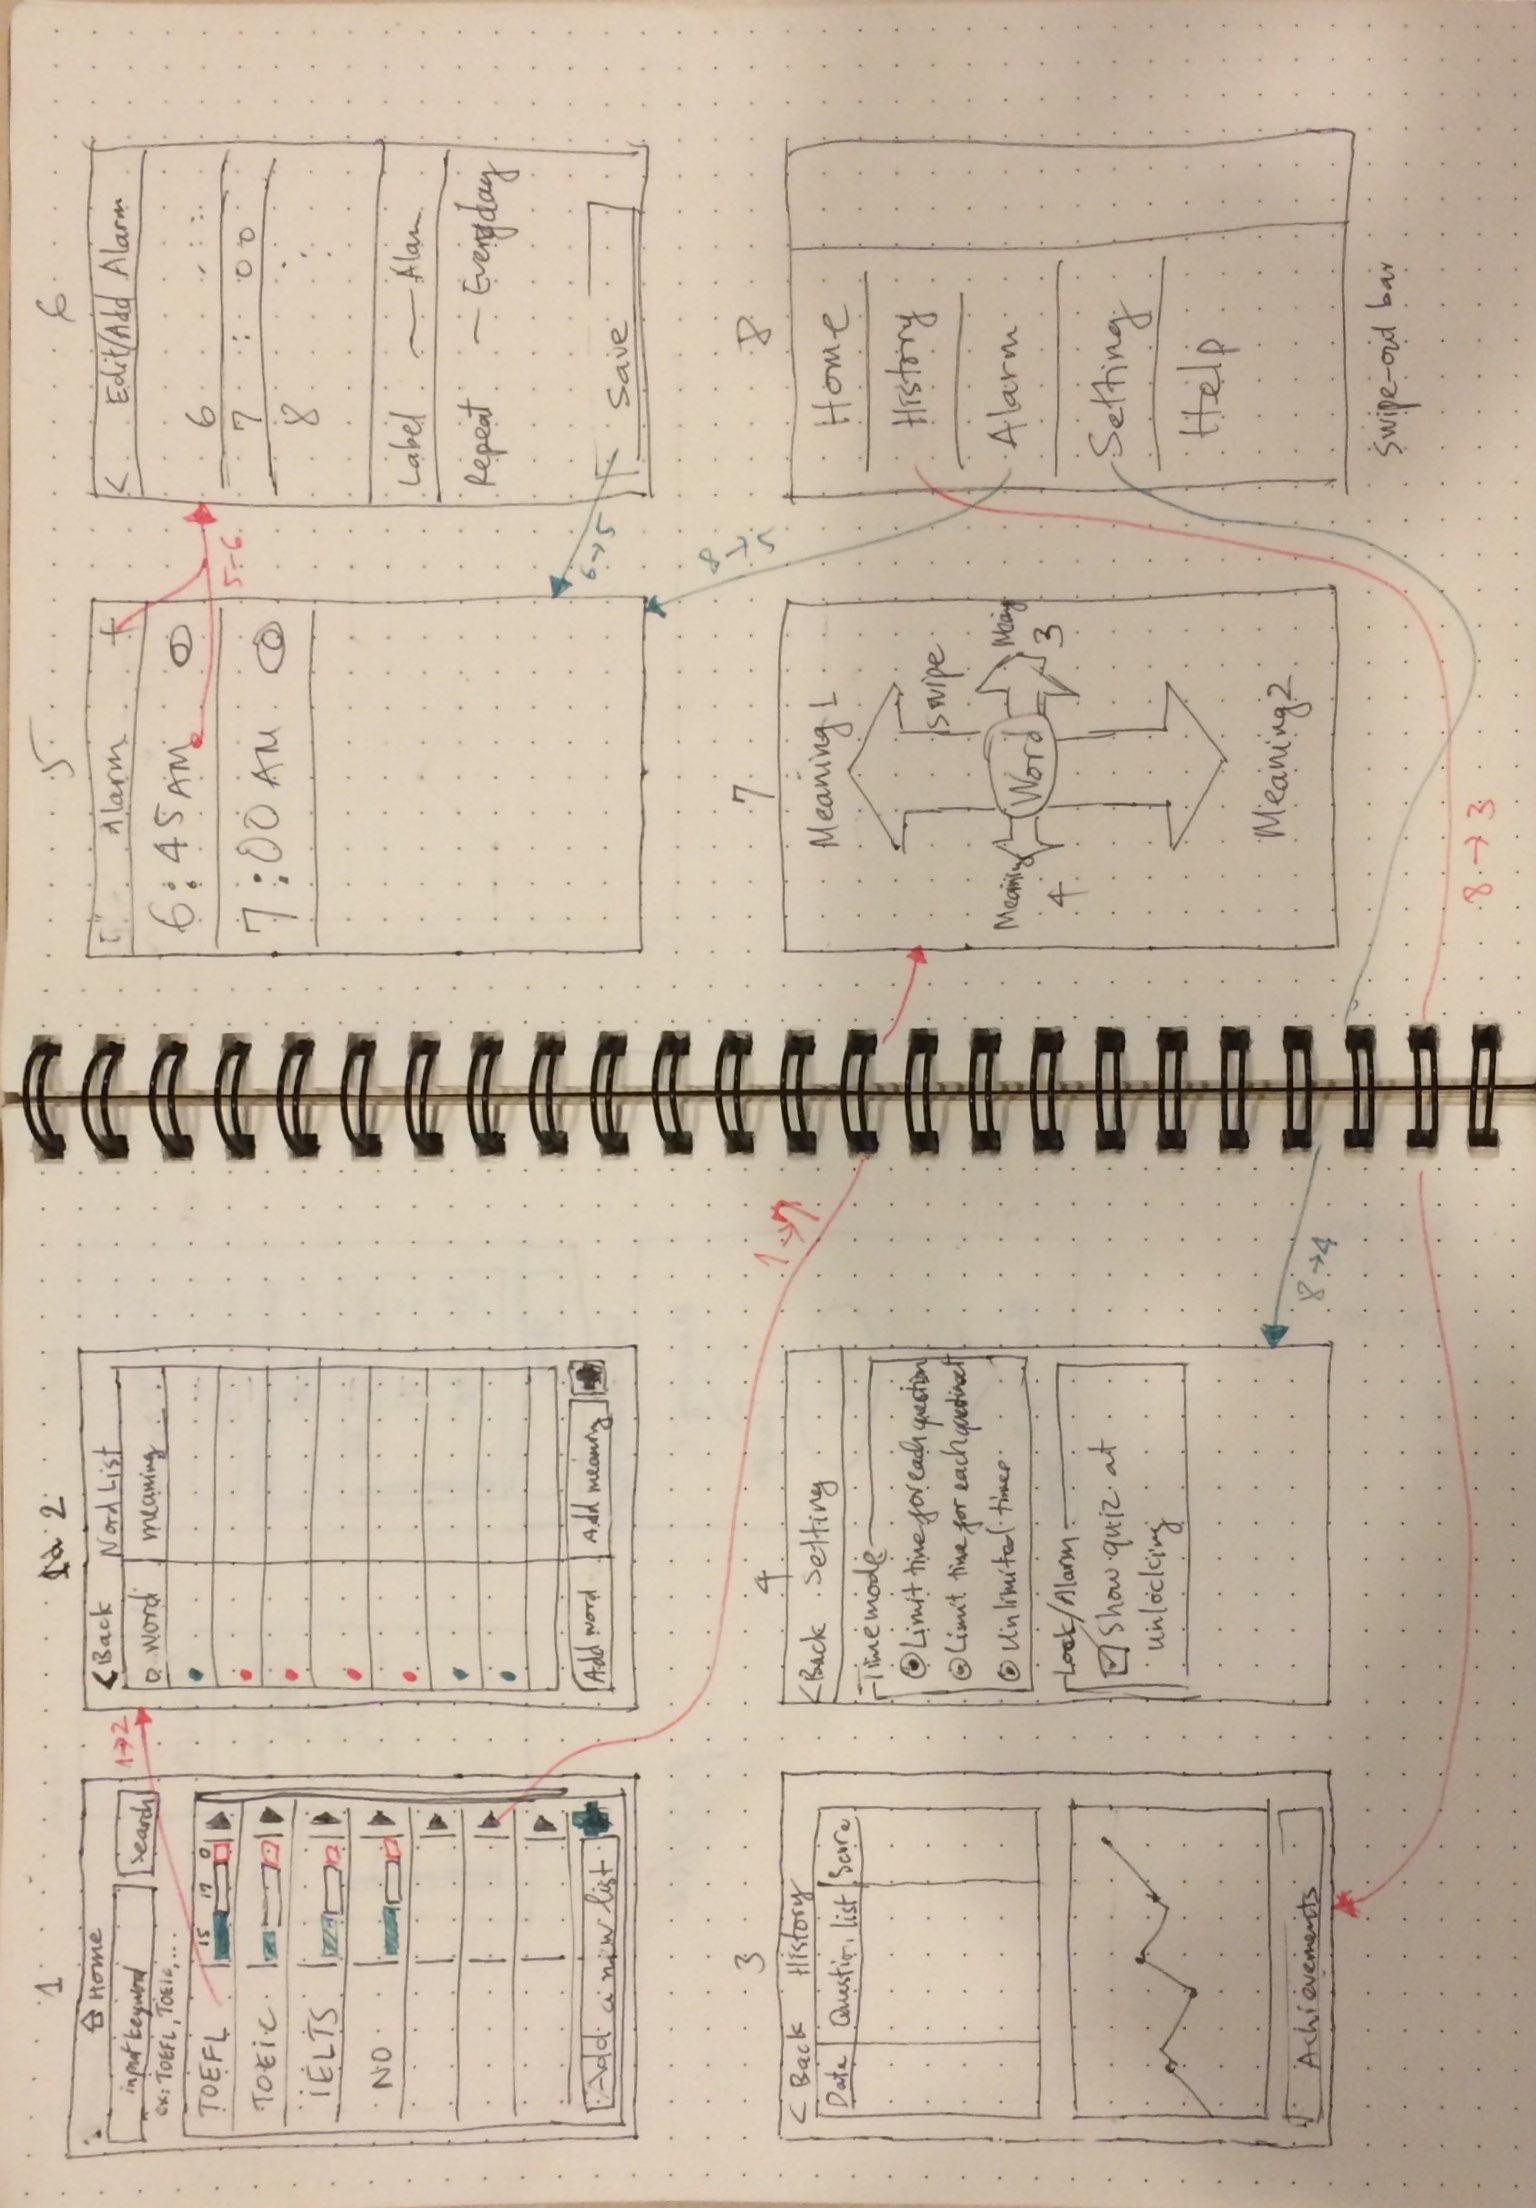 1
Home
input keyword
Search
ex: TOEFL, TOEIC, ...
15 17 0
TOEFL
TOEIC
IELTS
NO
Add a new list
1→2
2
< Back Word List
word meaning
Add word
Add meaning
1→7
3
< Back History
Date Question list Score
Achievements
4
< Back Setting
Time mode
Limit time for each question
Limit time for each
Unlimited time
Lock/Alarm
Show quiz at
unlocking
8→4
5
Alarm +
6:45 AM
7:00 AM
5-6
6
< Edit/Add Alarm
6
7 : 00
8
Label — Alam
Repeat — Everyday
Save
6→5
8→5
7
Meaning 1
swipe
Word
3
Meaning
4
Meaning 2
8
Home
History
Alarm
Setting
Help
Swipe-out bar
8→3